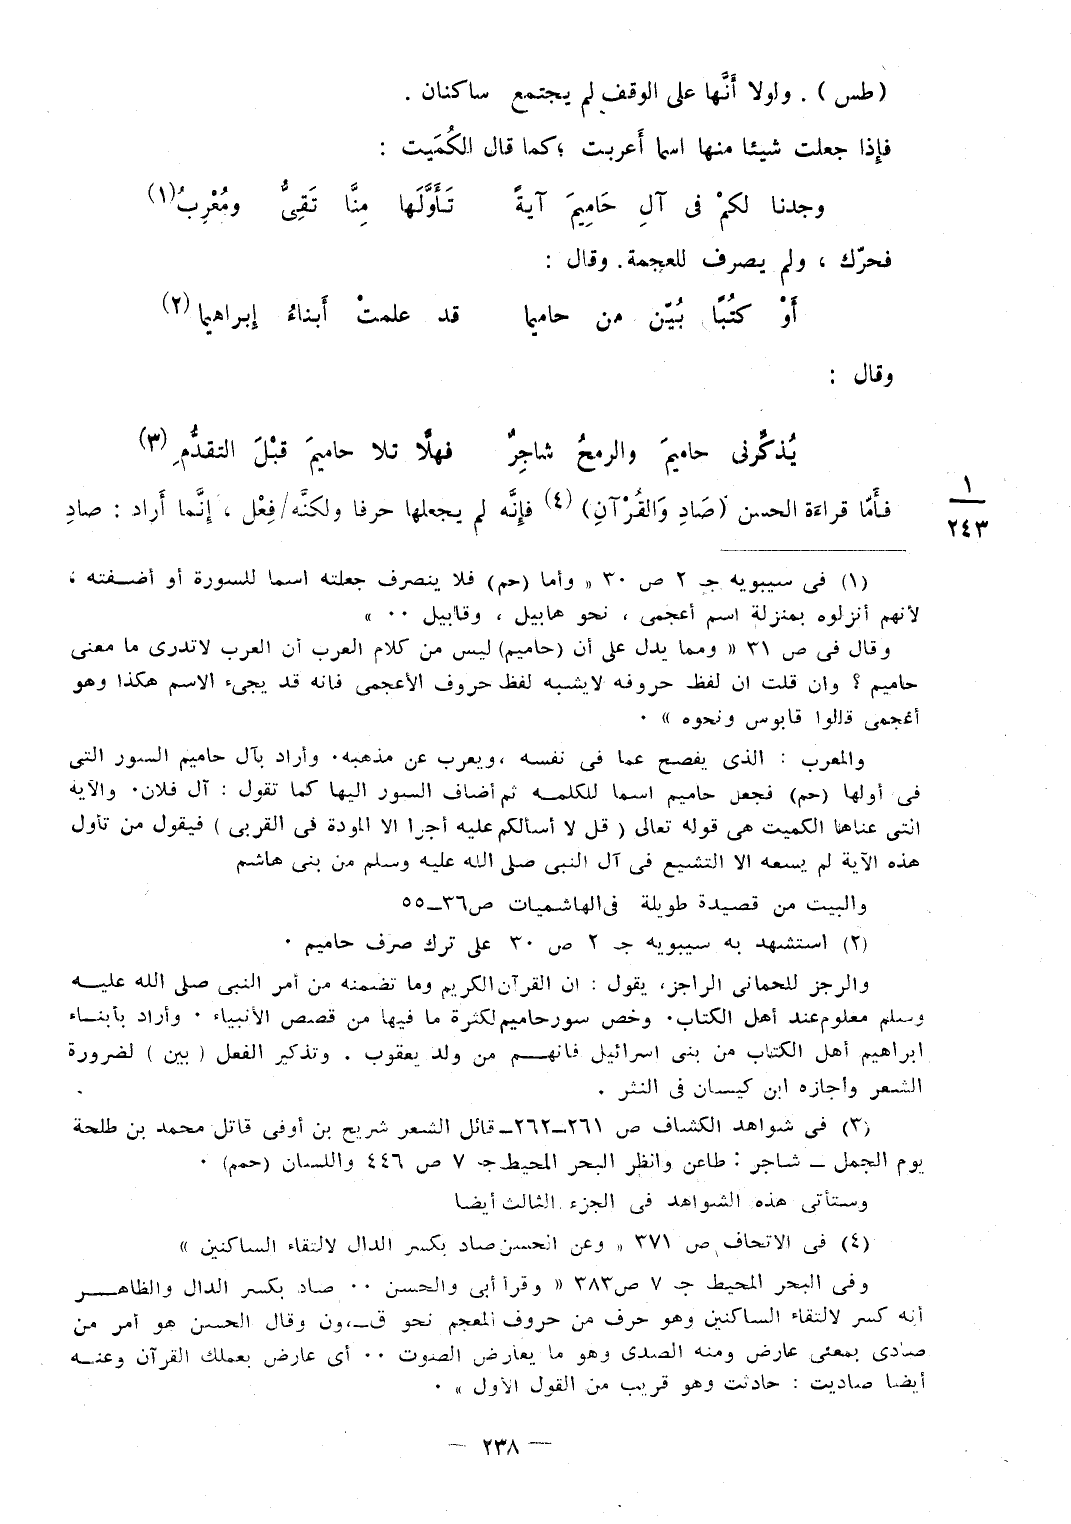 (طس). ولولا أَنَّها على الوقف لم يجتمع ساكنان.
فإِذا جعلت شيئا منها اسما أَعربت ؛ كما قال الكُمَيت :
وجدنا لكمْ فى آلِ حَامِيمَ آيةً تَأَوَّلَها مِنَّا تَقِىُّ ومُعْرِبُ(١)
فحرّك ، ولم يصرف للعجمة. وقال :
أَوْ كتُبًا بُيّن من حاميما قد علمتْ أَبناءُ إبراهيما (٢)
وقال :
يُذكِّرنى حاميمَ والرمحُ شاجِرٌ فهلَّا تلا حاميمَ قبْلَ التقدُّمِ (٣)
فأَمّا قراءَة الحسن (صَادِ وَالقُرْآنِ) (٤) فإِنَّه لم يجعلها حرفا ولكنَّه/فِعْل ، إِنَّما أَراد : صادِ
١
٢٤٣
(١) فى سيبويه جـ ٢ ص ٣٠ « وأما (حم) فلا ينصرف جعلته اسما للسورة أو أضـفته ،
لأنهم أنزلوه بمنزلة اسم أعجمى ، نحو هابيل ، وقابيل ٠٠ »
وقال فى ص ٣١ « ومما يدل على أن (حاميم) ليس من كلام العرب أن العرب لاتدرى ما معنى
حاميم ؟ وان قلت ان لفظ حروفه لايشبه لفظ حروف الأعجمى فانه قد يجىء الاسم هكذا وهو
أعجمى قالوا قابوس ونحوه » ٠
والمعرب : الذى يفصح عما فى نفسه ،ويعرب عن مذهبه٠ وأراد بآل حاميم السور التى
فى أولها (حم) فجعل حاميم اسما للكلمه ثم أضاف السور اليها كما تقول : آل فلان٠ والآية
التى عناها الكميت هى قوله تعالى ( قل لا أسألكم عليه أجرا الا المودة فى القربى ) فيقول من تأول
هذه الآية لم يسعه الا التشيع فى آل النبى صلى الله عليه وسلم من بنى هاشم
والبيت من قصيدة طويلة فى الهاشميات ص٣٦ــ٥٥
(٢) استشهد به سيبويه جـ ٢ ص ٣٠ على ترك صرف حاميم ٠
والرجز للحمانى الراجز، يقول : ان القرآن الكريم وما تضمنه من أمر النبى صلى الله عليـه
وسلم معلوم عند أهل الكتاب٠ وخص سورحاميم لكثرة ما فيها من قصص الأنبياء ٠ وأراد بأبنـاء
ابراهيم أهل الكتاب من بنى اسرائيل فانهـم من ولد يعقوب . وتذكير الفعل ( بين ) لضرورة
الشعر وأجازه ابن كيسان فى النثر .
(٣) فى شواهد الكشاف ص ٢٦١ــ٢٦٢ــ قائل الشعر شريح بن أوفى قاتل محمد بن طلحة
يوم الجمل ــ شاجر : طاعن وانظر البحر المحيط جـ ٧ ص ٤٤٦ واللسان (حمم) ٠
وستأتى هذه الشواهد فى الجزء الثالث أيضا
(٤) فى الاتحاف ص ٣٧١ « وعن الحسن صاد بكسر الدال لالتقاء الساكنين »
وفى البحر المحيط جـ ٧ ص٣٨٣ « وقرأ أبى والحسن ٠٠ صاد بكسر الدال والظاهـر
أنه كسر لالتقاء الساكنين وهو حرف من حروف المعجم نحو ق ، ون وقال الحسن هو أمر من
صادى بمعنى عارض ومنه الصدى وهو ما يعارض الصوت ٠٠ أى عارض بعملك القرآن وعنـه
أيضا صاديت : حادثت وهو قريب من القول الأول » ٠
— ٢٣٨ —